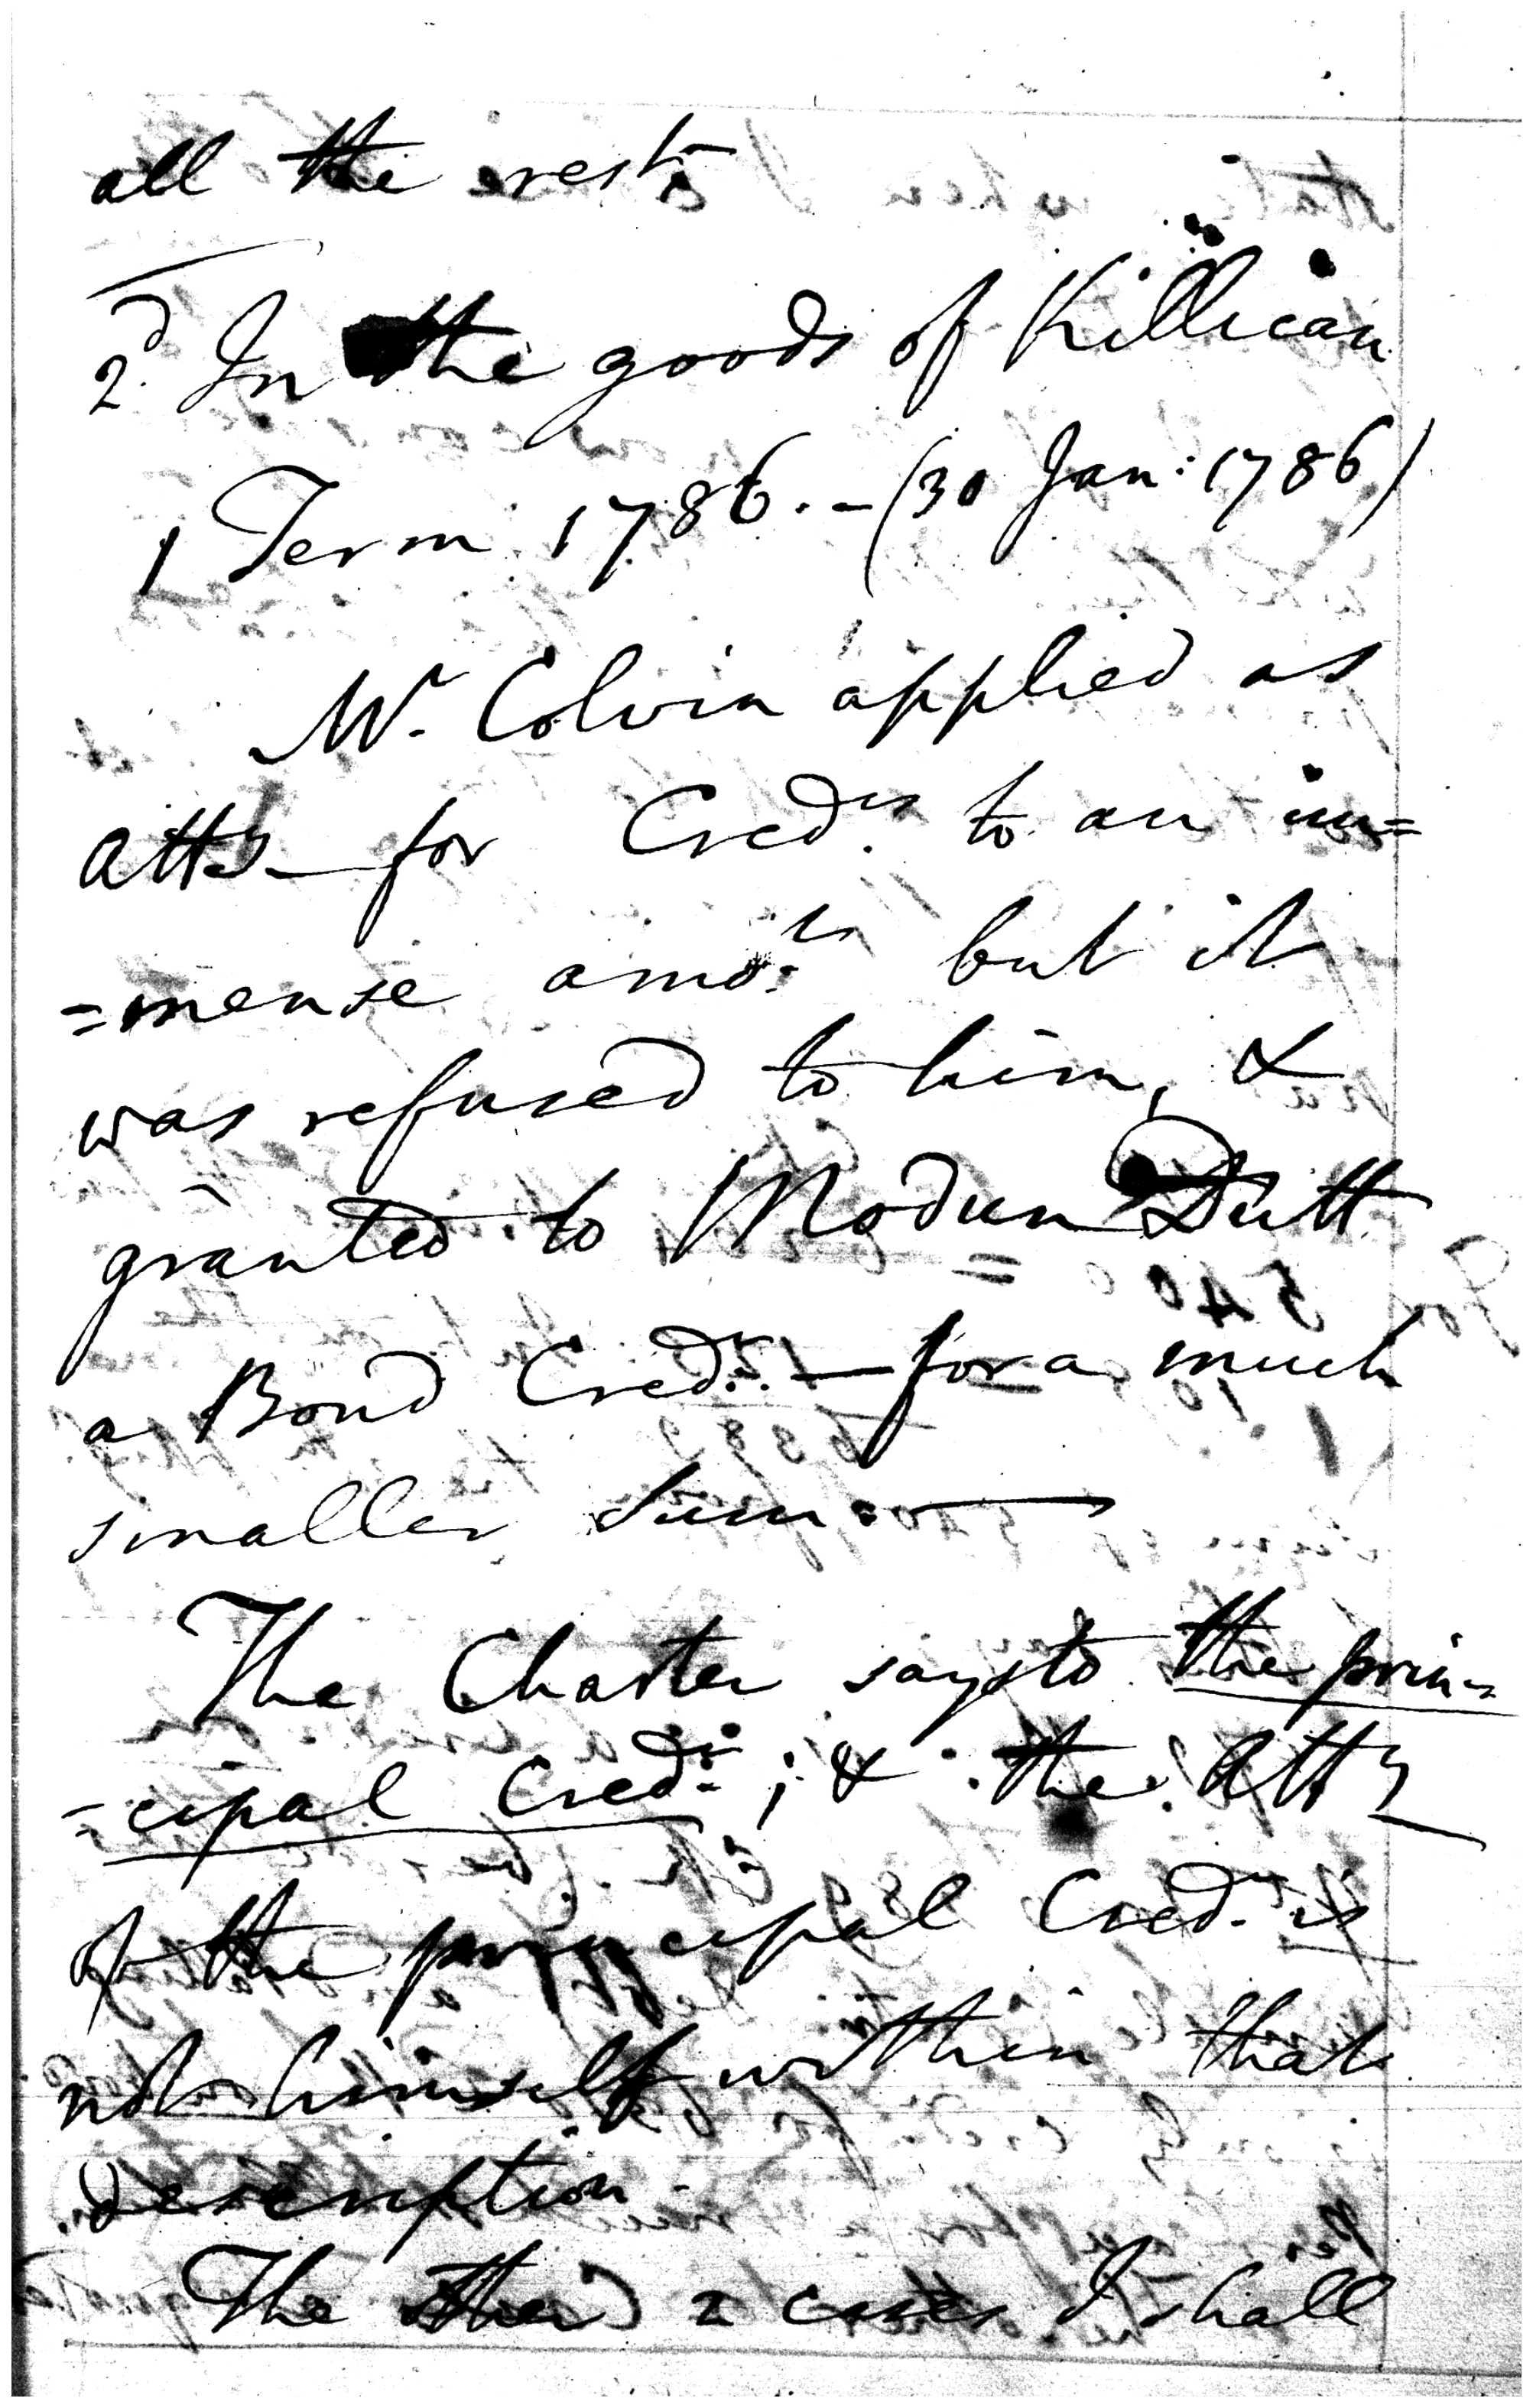 all the rest
2d. In the goods of Killican
1 Term 1786. - (30 Jan: 1786)
Mr. Colvin applied as
Atty - for Credrs. to an im=
=mense amot. but it
was refused to him, &
granted to Modun Dutt
a Bond Credr. - for a much
smaller sum. —
The Charter says to the prin=
=cipal Credr. ; & the Atty
of the principal Credr. is
not himself within that
description.
The other 2 cases I shall